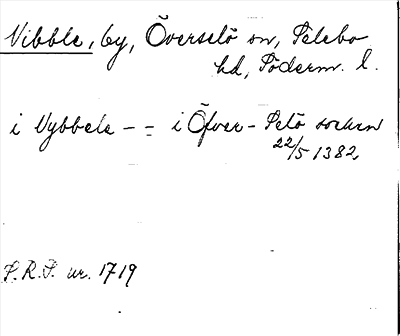 Vibble, by, Överselö sn, Selebo
hd, Söderm. l.
i Vybbele - = i Öfver-Selö socken
22/5 1382.
S.R.P. nr. 1719